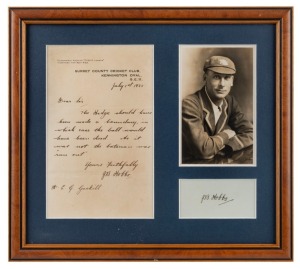 SURREY COUNTY CRICKET CLUB,
KENNINGTON OVAL,
S.E.11.
Dear Sir
The Hedge should have
been made a boundary in
which case the ball would
have been dead. As it
was not the batsman was
run out
Yours Faithfully
JB Hobbs
JB Hobbs